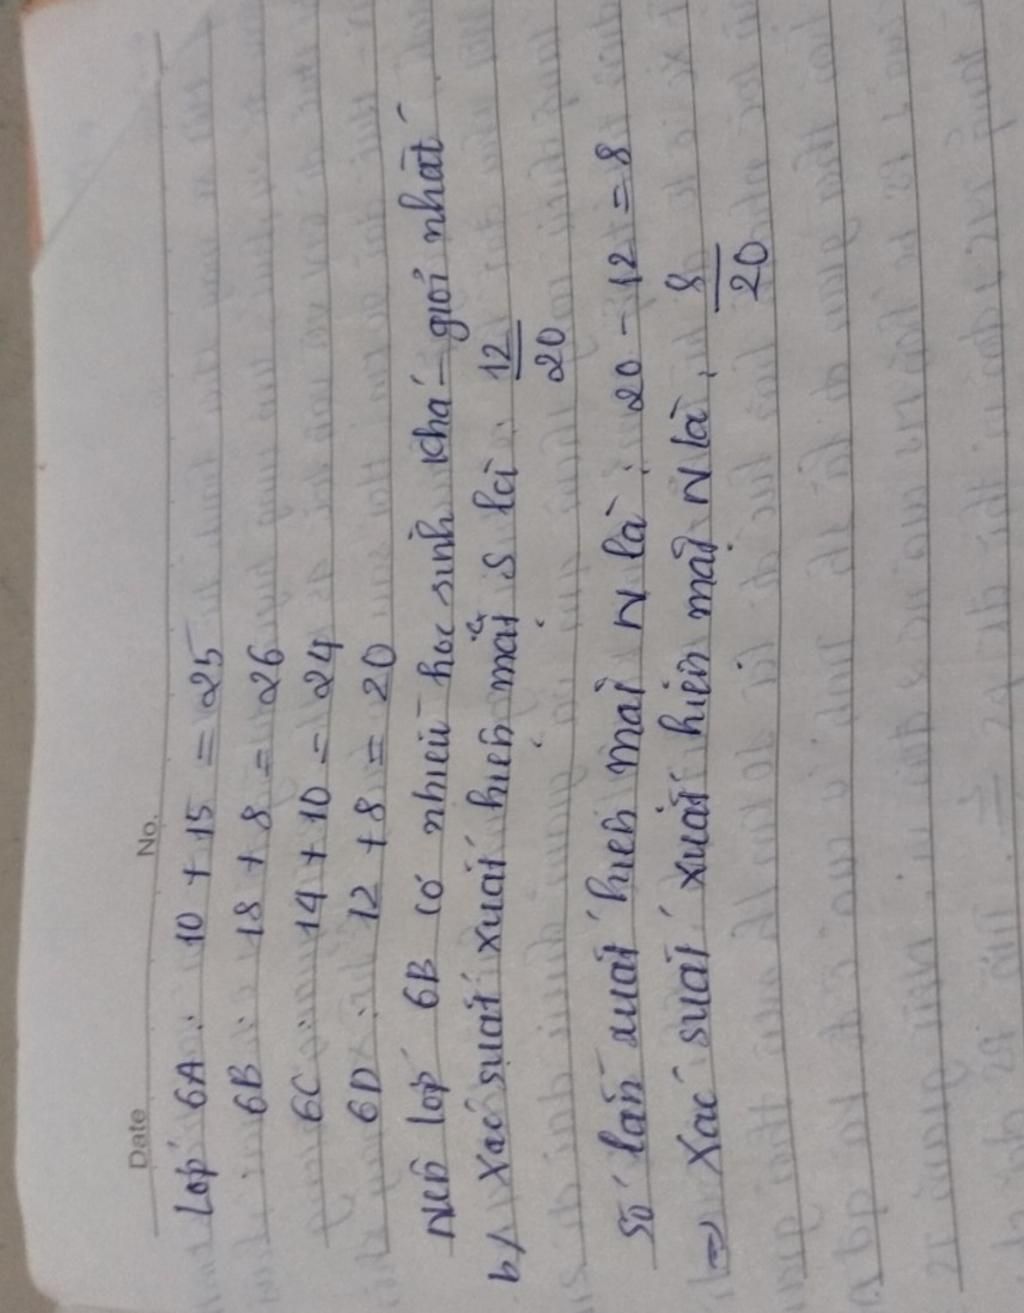 Date No.
Lớp 6A : 10 + 15 = 25
6B : 18 + 8 = 26
6C : 14 + 10 = 24
6D : 12 + 8 = 20
Nên lớp 6B có nhiều học sinh khá - giỏi nhất
b/ Xác suất xuất hiện mặt S là : 12/20
Số lần xuất hiện mặt N là : 20 - 12 = 8
=> Xác suất xuất hiện mặt N là : 8/20